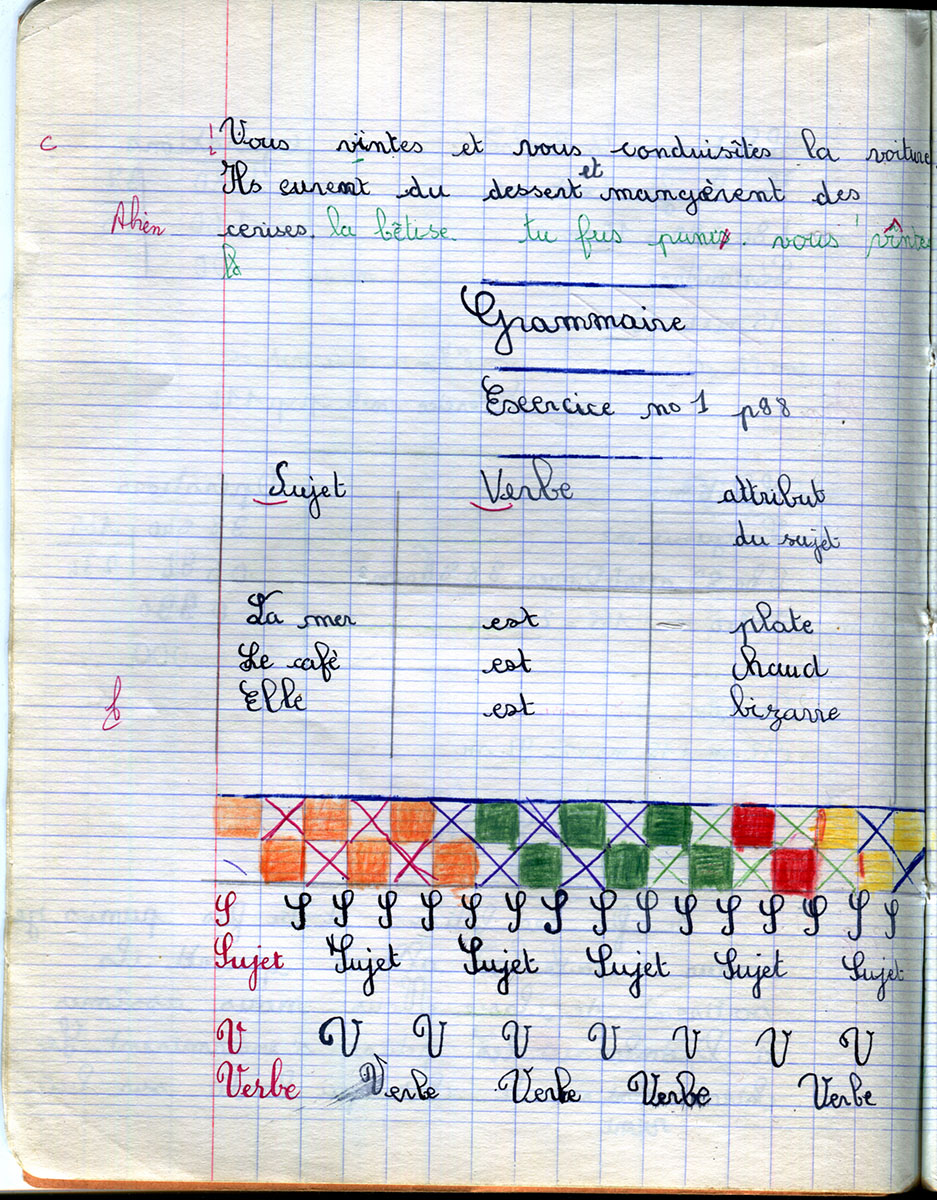 c
! Vous vîntes et vous conduisîtes la voiture
et
Ils eurent du dessert mangèrent des
cerises. la bêtise. tu fus puni. vous vîntes
là
Grammaire
Exercice no 1 p 98
Sujet Verbe attribut
du sujet
La mer est plate
Le café est chaud
Elle est bizarre
S S S S S S S S S S S S S S S S
Sujet Sujet Sujet Sujet Sujet Sujet
V V V V V V V V
Verbe Verbe Verbe Verbe Verbe